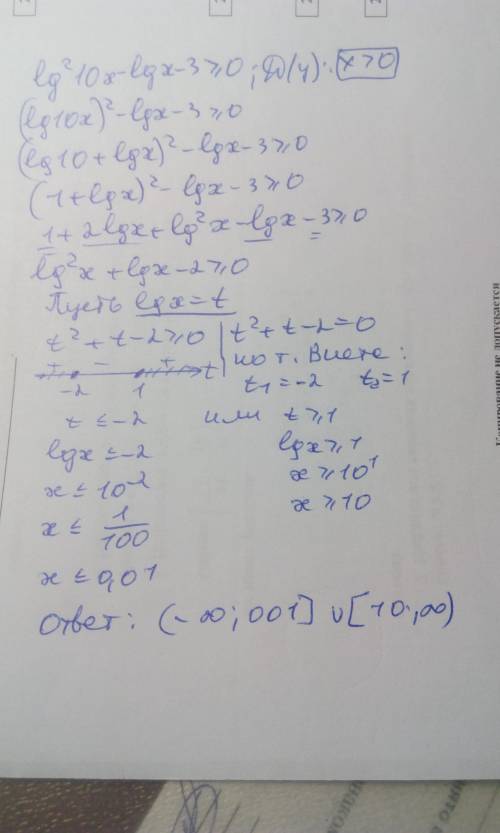 lg²10x-lgx-3≥0; D(y): x>0
(lg10x)²-lgx-3≥0
(lg10+lgx)²-lgx-3≥0
(1+lgx)²-lgx-3≥0
1+2lgx+lg²x-lgx-3≥0
lg²x+lgx-2≥0
Пусть lgx=t
t²+t-2≥0
+ - + t
-2 1
t²+t-2=0
по т. Виета:
t₁=-2 t₂=1
t≤-2 или t≥1
lgx≤-2 lgx≥1
x≤10⁻² x≥10¹
x≤1/100 x≥10
x≤0,01
Ответ: (-∞;001]∪[10;∞)
Копирование не допускается